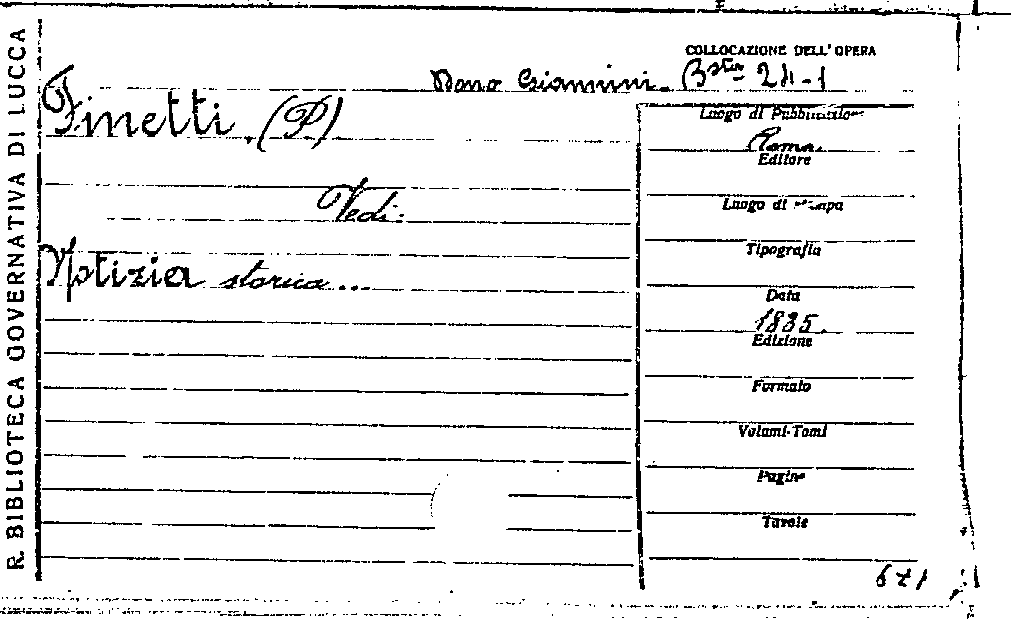 R. BIBLIOTECA GOVERNATIVA DI LUCCA
COLLOCAZIONE DELL'OPERA
Dono Giannini. B.sta 24-1
Finetti. (P.)
Vedi:
Notizia storica...
Luogo di Pubblicazione
Roma.
Editore
Luogo di stampa
Tipografia
Data
1835.
Edizione
Formato
Volumi-Tomi
Pagine
Tavole